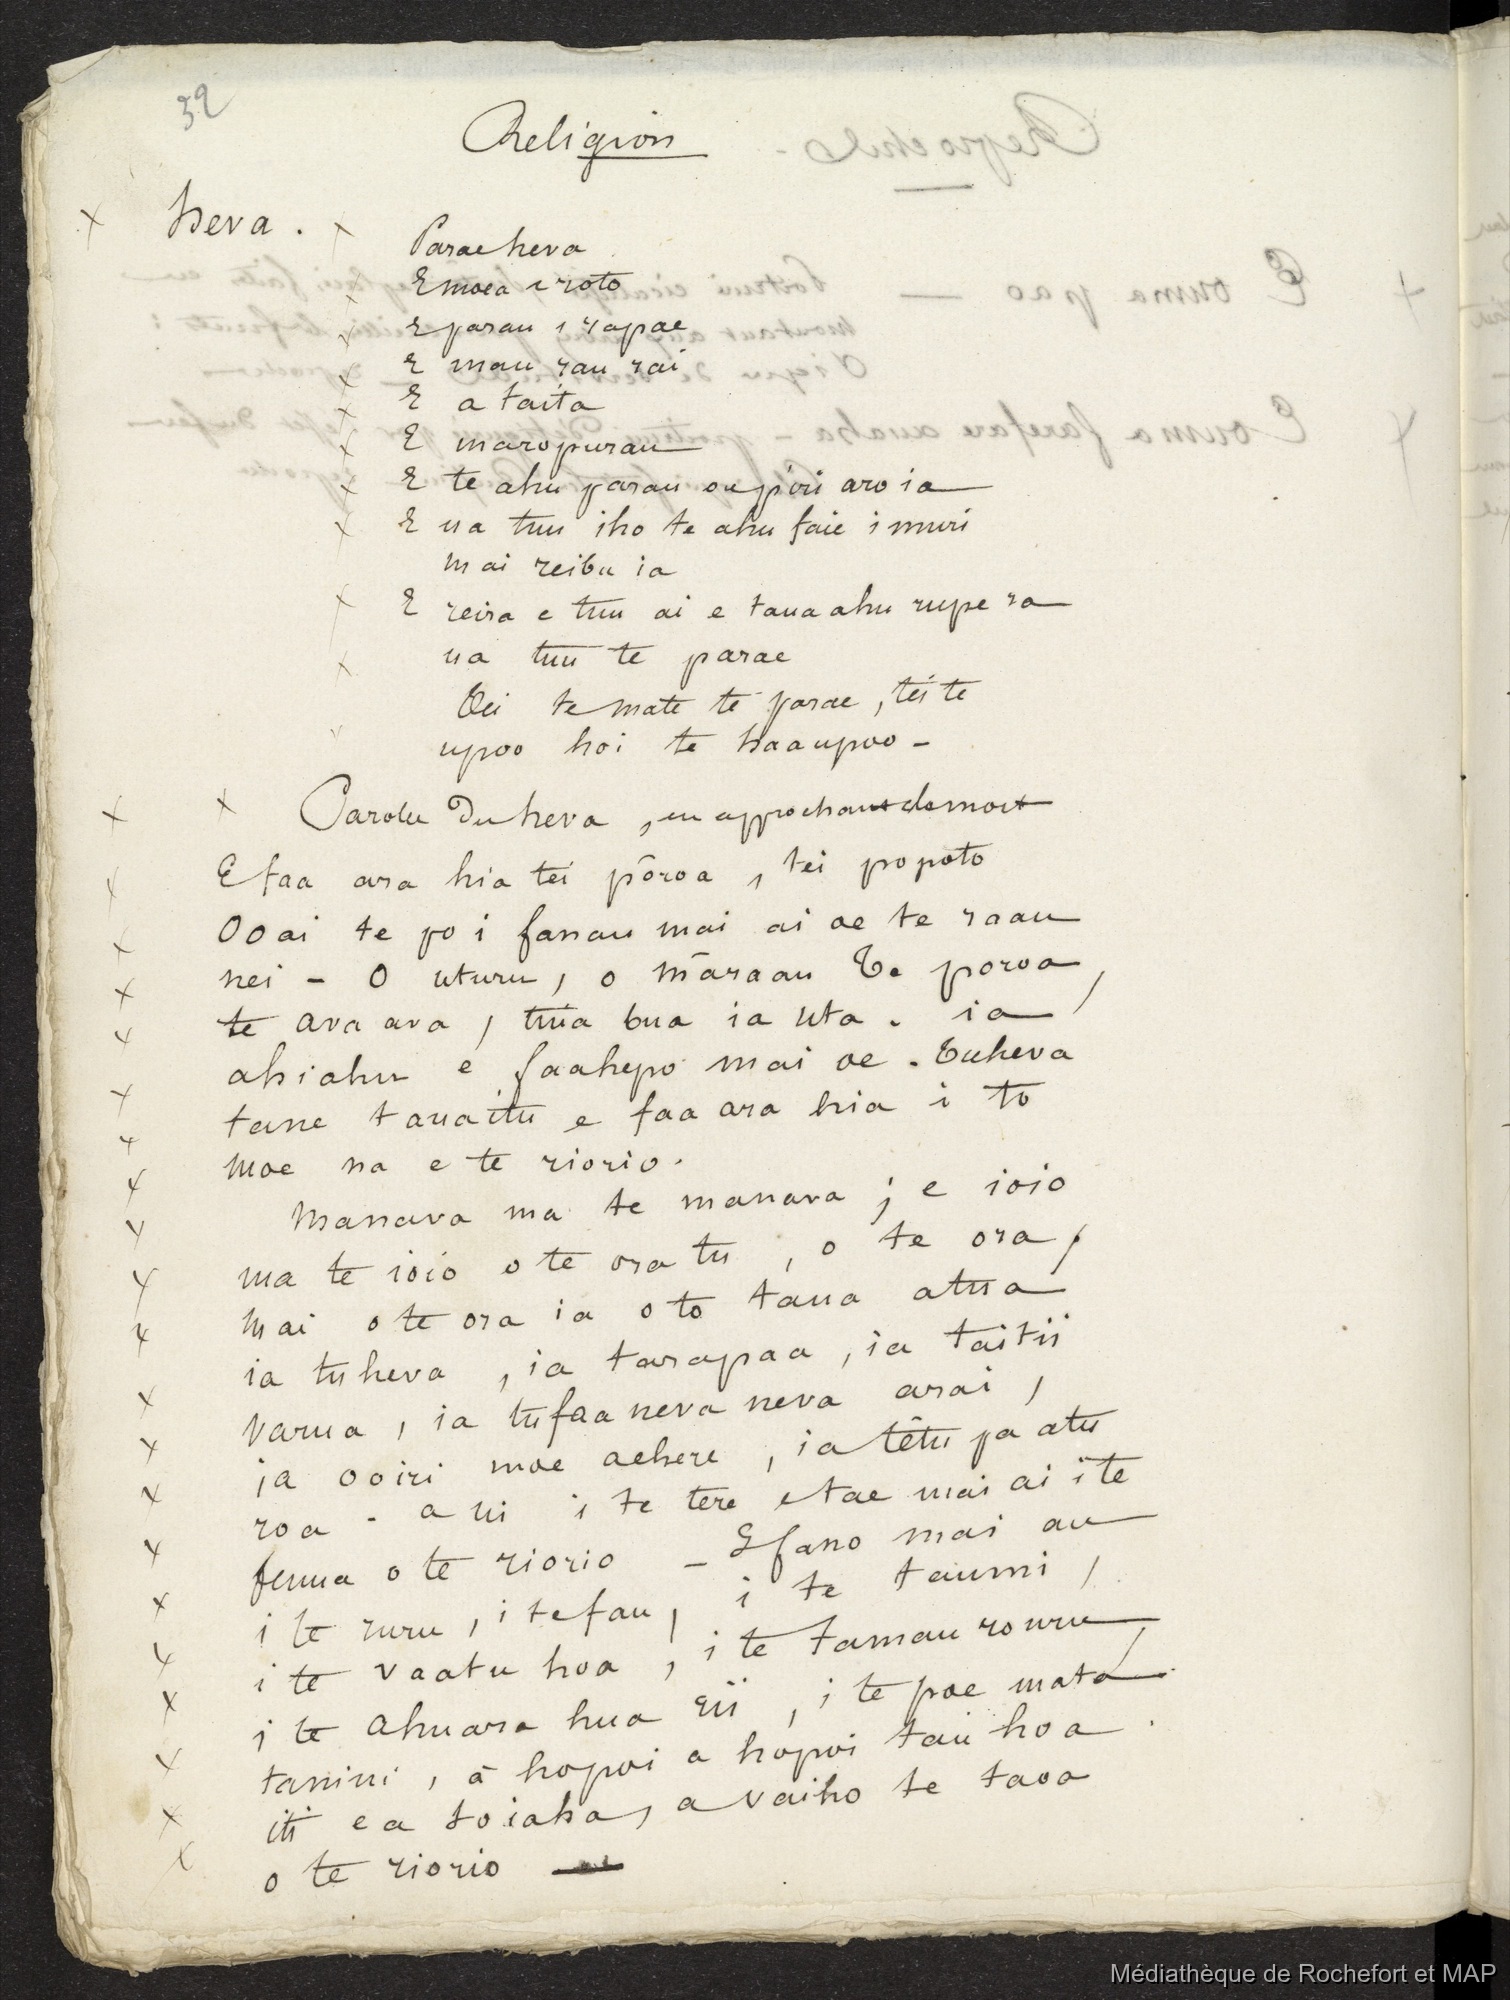 32
Religion
heva.
Parae heva
E moea i roto
E parau i rapae
E mau rau rai
E a taita
E maropurau
E te ahu parau oupiri aroia
E ua tuu iho te ahu faie i muri
mai reibu ia
E reira e tuu ai e taua ahu rupe ra
ua tuu te parae
Oei te mate te parae, tei te
upoo hoi te haaupoo -
Paroles du heva, en approchant le mort
E faa ara hia tei pōroa, tei popoto
O oai te po i fanau mai ai oe te raau
nei - O uturu, o māraau Te poroa,
te ava ava, tuua bua ia uta. ia
ahiahu e faahepo mai oe. Tuheva
tane tauaitu e faa ara hia i to
moe na e te riorio.
Manava ma te manava ; e ioio
ma te ioio o te ora tu, o te ora,
mai o te ora ia o to taua atua
ia tu heva, ia tarapaa, ia taitii
varua, ia tufaa neva neva arai,
ia ooiri moe aehere, ia tētu pa atu
roa - a ui i te tere e tae mai ai i te
fenua o te riorio - E fano mai au
i te ruru, i te fau, i te taumi,
i te vaatu hoa, i te tamau rouru,
i te ahuara hua rii, i te poe mata
tanini, ā hopoi a hopoi tau hoa.
iti e a toiaha, a vaiho te taoa
o te riorio —
Reproches -
E ouma pao —
E ouma farefare auaha -
Médiathèque de Rochefort et MAP